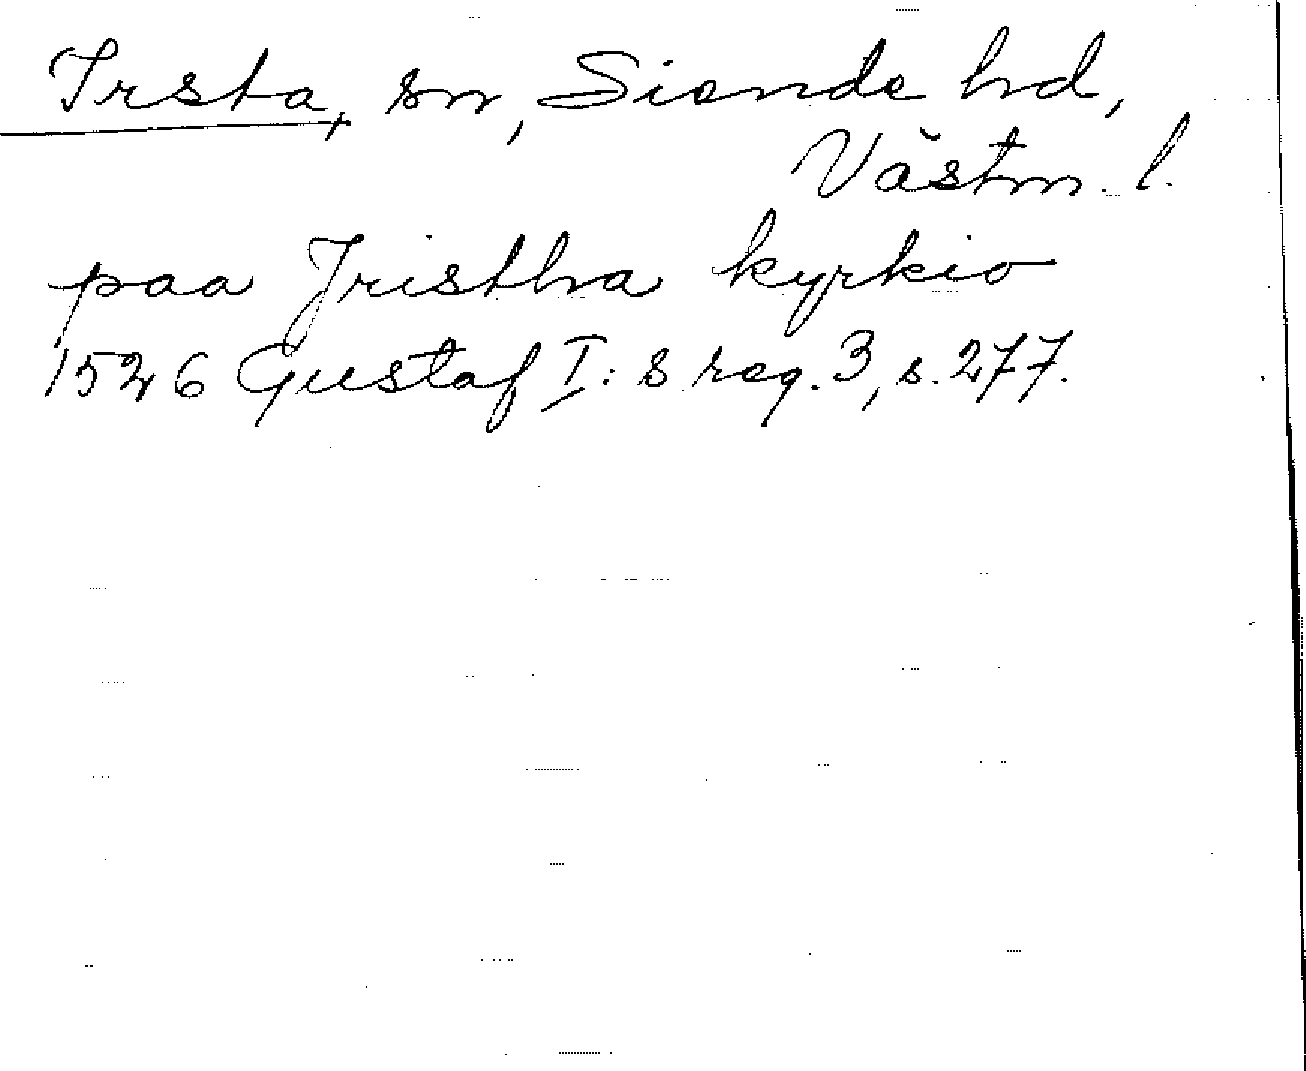 Irsta, sn, Siende hd,
Västm. l.
paa Jristha kyrkio
1526 Gustaf I:s reg. 3, s. 277.